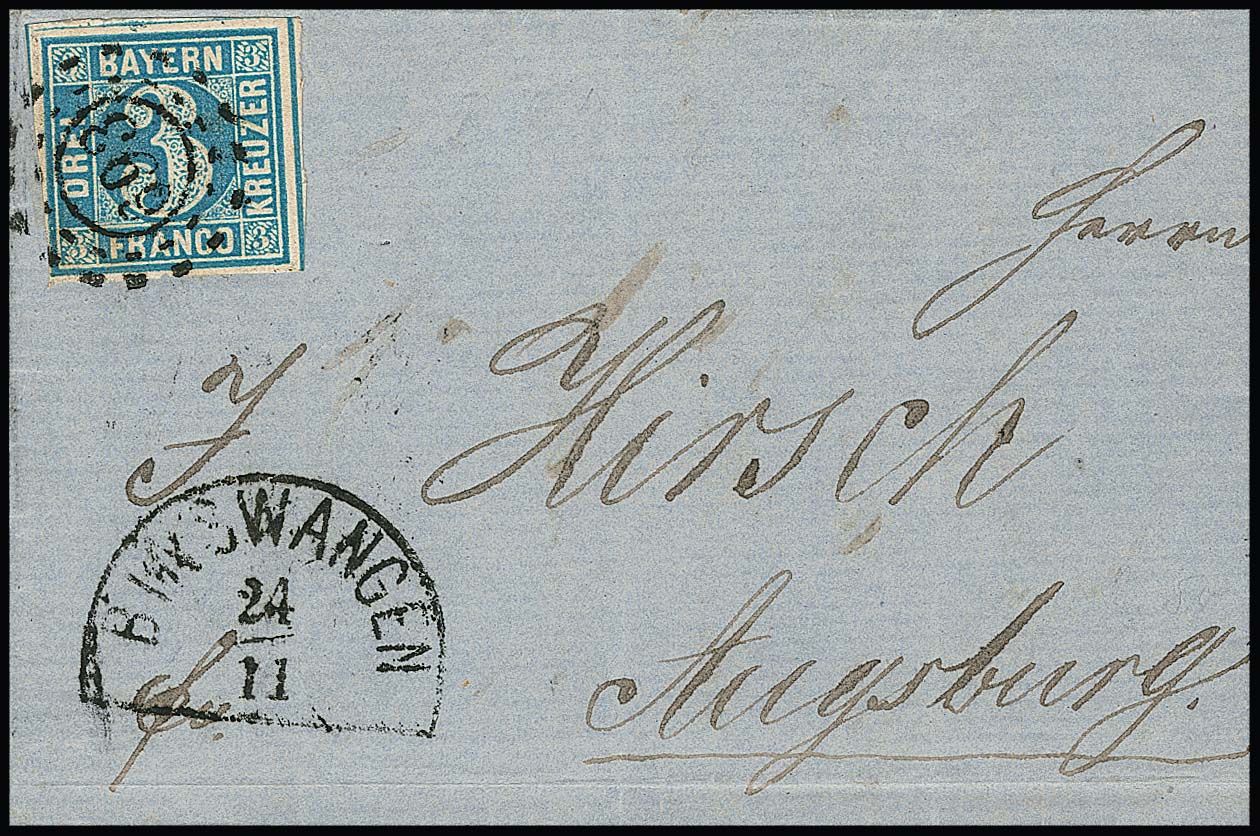 3 BAYERN 3
DREI 3 KREUZER
3 FRANCO 3
Herrn
J Hirsch
24
11
fr.
Augsburg.